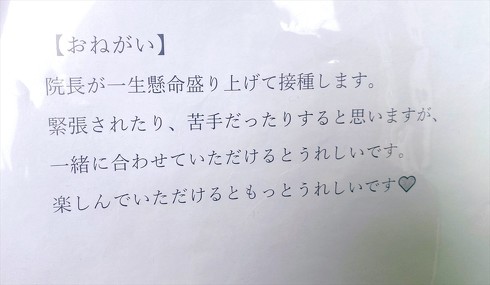 【おねがい】
院長が一生懸命盛り上げて接種します。
緊張されたり、苦手だったりすると思いますが、
一緒に合わせていただけるとうれしいです。
楽しんでいただけるともっとうれしいです♡